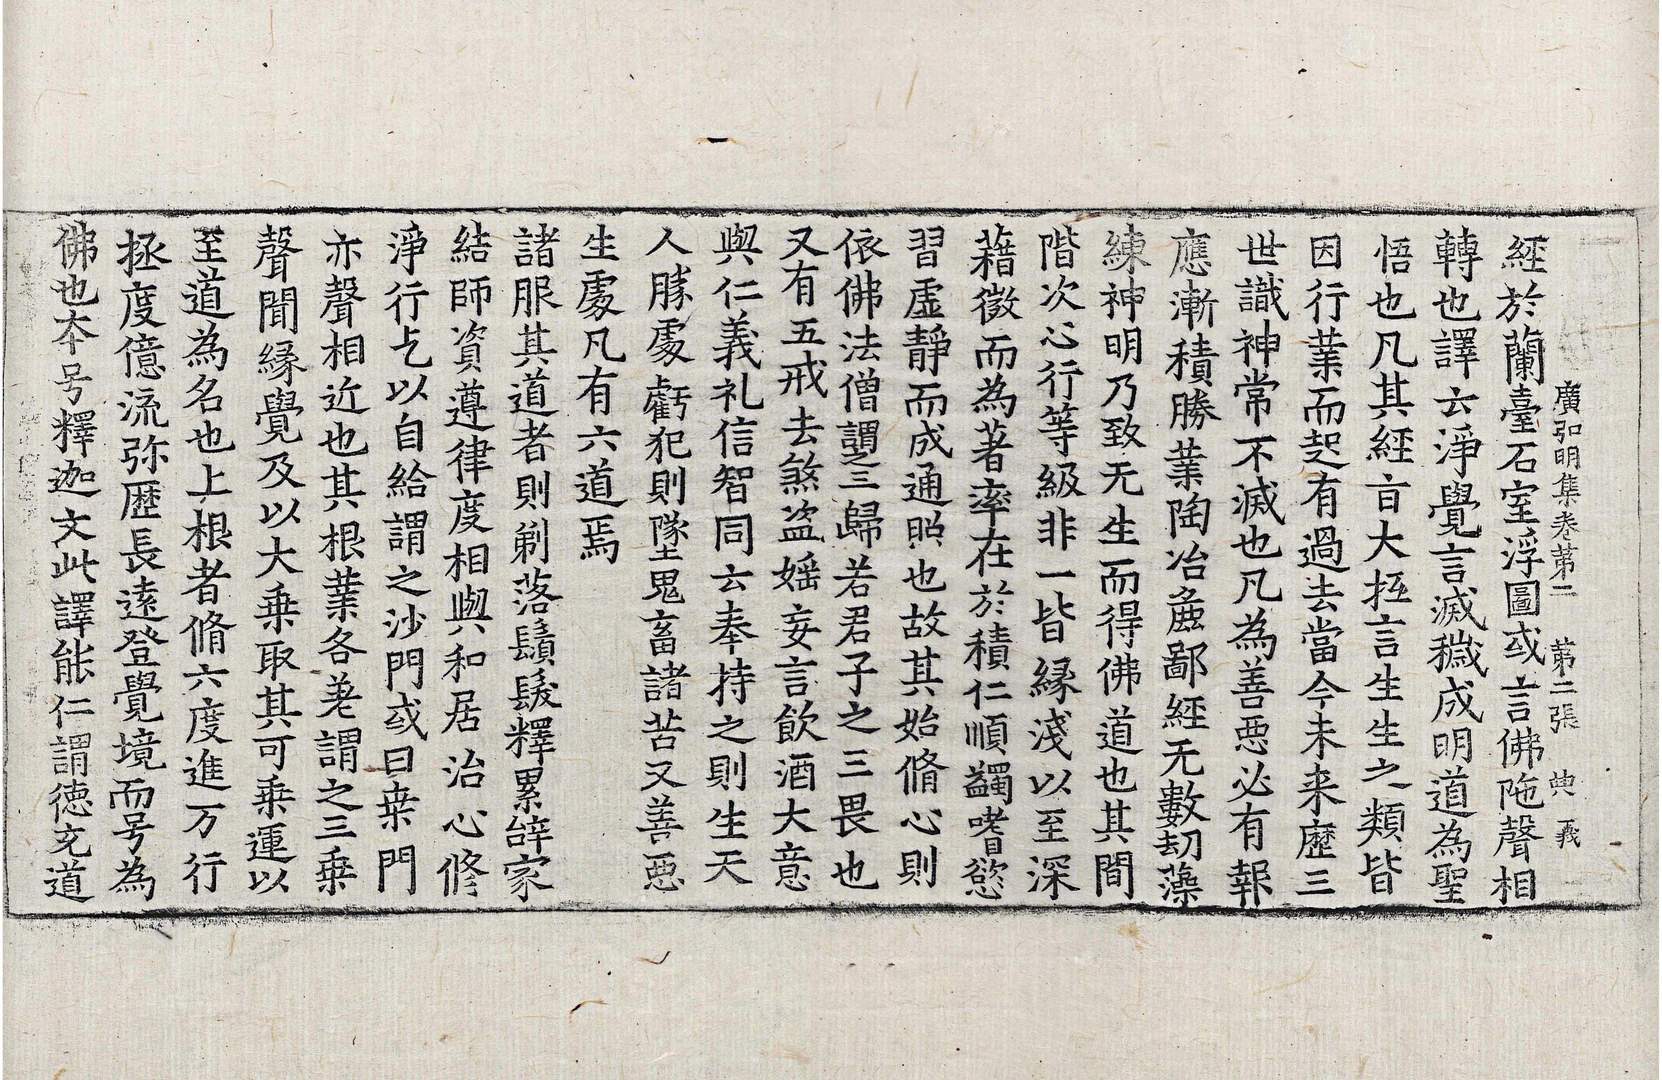 廣弘明集卷第二 第二張 典 義
經於蘭臺石室浮圖或言佛陁聲相
轉也譯云淨覺言滅穢成明道為聖
悟也凡其經言大抵言生生之類皆
因行業而起有過去當今未来歷三
世識神常不滅也凡為善惡必有報
應漸積勝業陶冶麁鄙經无數劫藻
練神明乃致无生而得佛道也其間
階次心行等級非一皆緣淺以至深
藉微而為著率在於積仁順蠲嗜慾
習虛靜而成通照也故其始脩心則
依佛法僧謂之三歸若君子之三畏也
又有五戒去煞盗婬妄言飲酒大意
與仁義礼信智同云奉持之則生天
人勝處虧犯則墜鬼畜諸苦又善惡
生處凡有六道焉
諸服其道者則剃落鬚髮釋累辝家
結師資遵律度相與和居治心修
淨行乞以自給謂之沙門或曰桒門
亦聲相近也其根業各差謂之三乗
聲聞緣覺及以大乗取其可乗運以
至道為名也上根者脩六度進万行
拯度億流弥歷長遠登覺境而号為
佛也本号釋迦文此譯能仁謂德充道